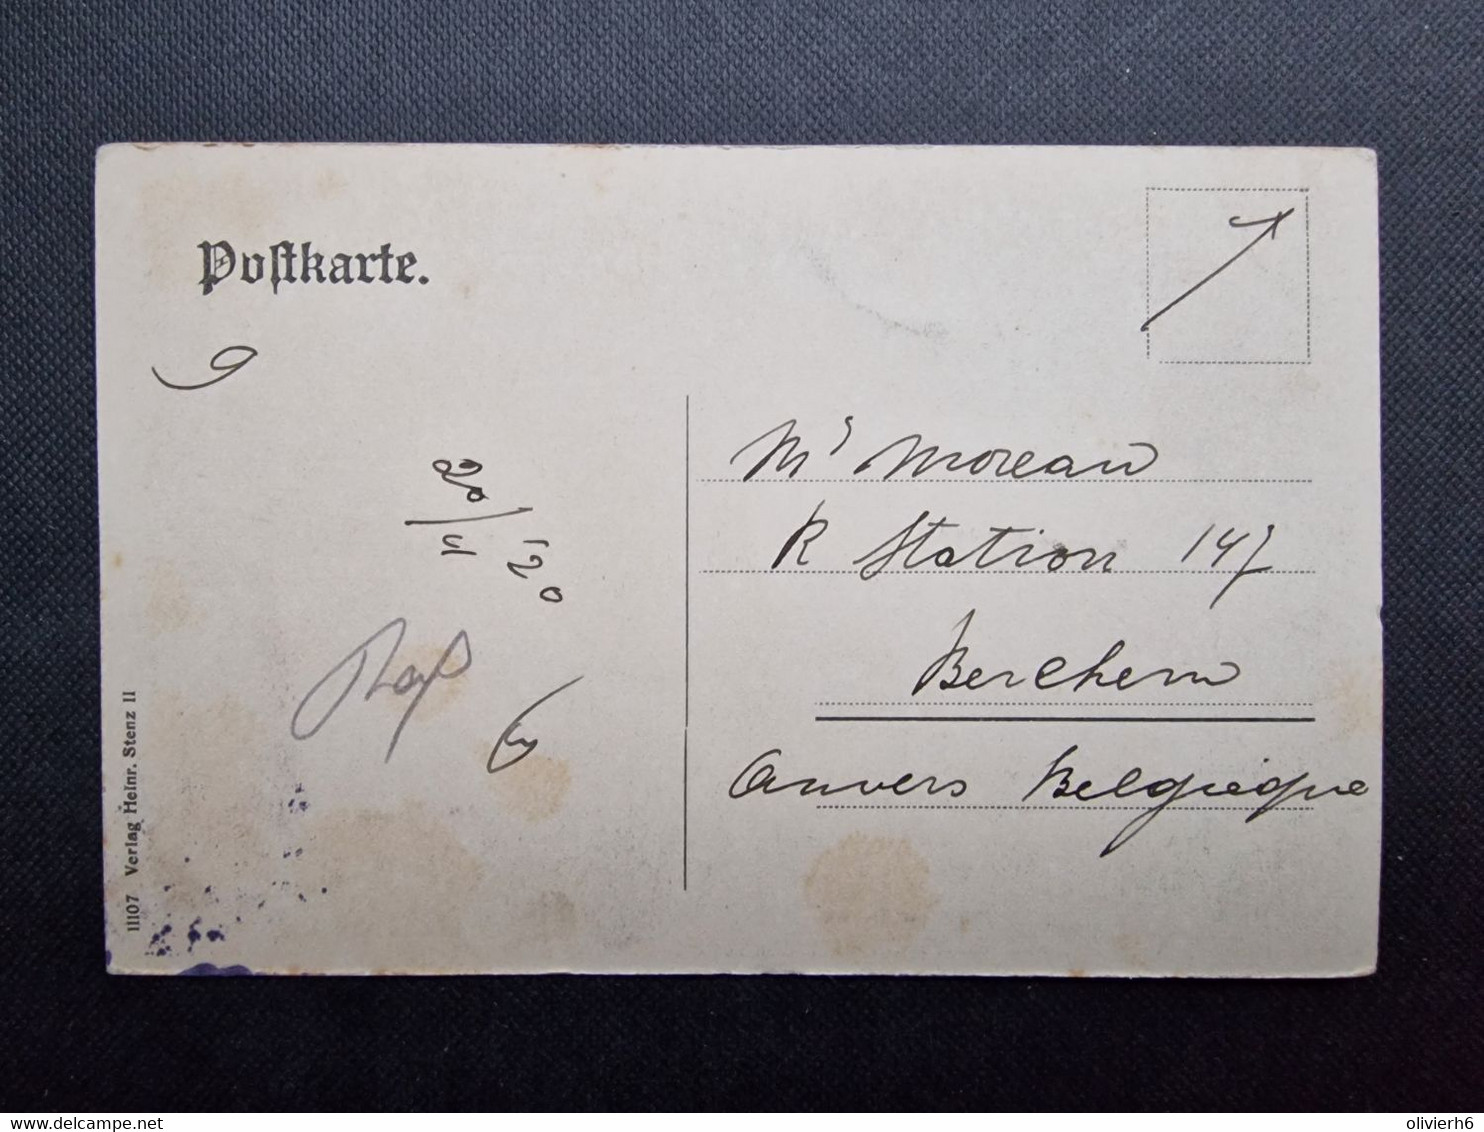 Postkarte.
9
20/4 '20
Mr Moreau
R Station 147
Berchem
Anvers Belgique
11107 Verlag Heinr. Stenz II
delcampe.net
olivierh6